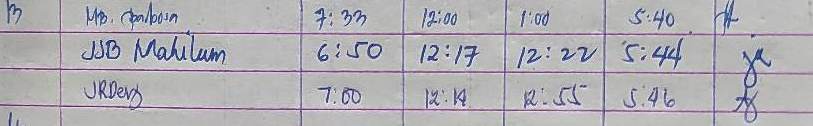 13 MB. 7:33 12:00 1:00 5:40
JJB Mahilum 6:50 12:17 12:22 5:44
JRDevs 7:00 12:14 12:55 5:46